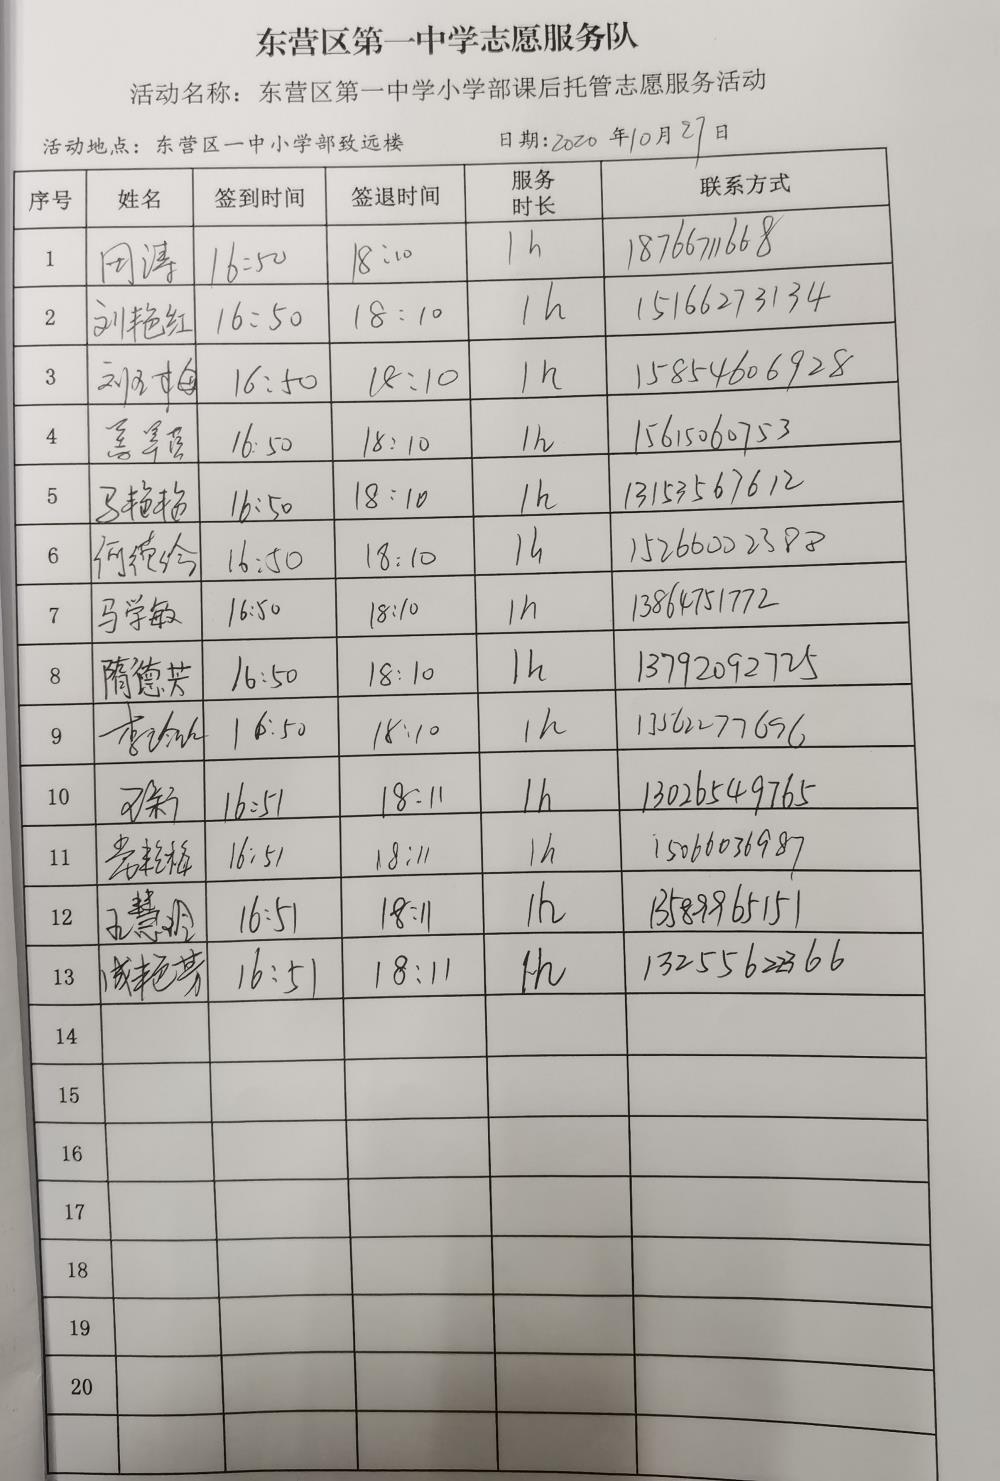 东营区第一中学志愿服务队
活动名称：东营区第一中学小学部课后托管志愿服务活动
活动地点：东营区一中小学部致远楼 日期:2020 年10月27日
序号 姓名 签到时间 签退时间 服务时长 联系方式
1 田涛 16:50 18:10 1h 18766711668
2 刘艳红 16:50 18:10 1h 15166273134
3 16:50 18:10 1h 15854606928
4 16:50 18:10 1h 15615060753
5 马艳艳 16:50 18:10 1h 13153567612
6 16:50 18:10 1h 15266002388
7 马学敏 16:50 18:10 1h 13864751772
8 隋德芳 16:50 18:10 1h 13792092725
9 16:50 18:10 1h 13562277696
10 16:51 18:11 1h 13026549765
11 16:51 18:11 1h 15066036987
12 王慧玲 16:51 18:11 1h 13589965151
13 16:51 18:11 1h
14
15
16
17
18
19
20